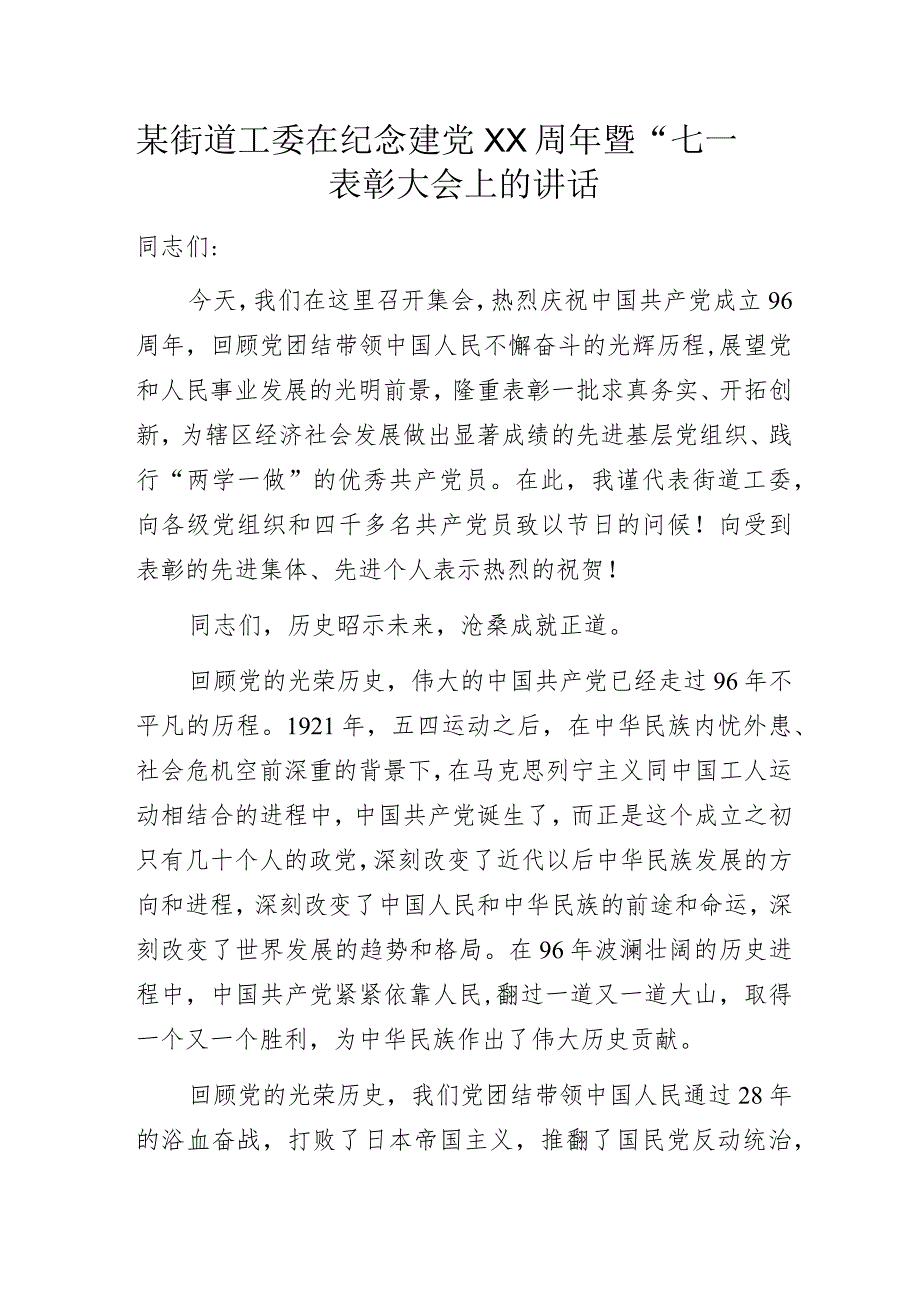 某街道工委在纪念建党 XX 周年暨“七一
表彰大会上的讲话
同志们:
今天,我们在这里召开集会,热烈庆祝中国共产党成立 96
周年，回顾党团结带领中国人民不懈奋斗的光辉历程,展望党
和人民事业发展的光明前景，隆重表彰一批求真务实、开拓创
新，为辖区经济社会发展做出显著成绩的先进基层党组织、践
行“两学一做”的优秀共产党员。在此，我谨代表街道工委，
向各级党组织和四千多名共产党员致以节日的问候！向受到
表彰的先进集体、先进个人表示热烈的祝贺！
同志们，历史昭示未来，沧桑成就正道。
回顾党的光荣历史，伟大的中国共产党已经走过 96 年不
平凡的历程。1921 年，五四运动之后，在中华民族内忧外患、
社会危机空前深重的背景下，在马克思列宁主义同中国工人运
动相结合的进程中，中国共产党诞生了，而正是这个成立之初
只有几十个人的政党，深刻改变了近代以后中华民族发展的方
向和进程，深刻改变了中国人民和中华民族的前途和命运，深
刻改变了世界发展的趋势和格局。在 96 年波澜壮阔的历史进
程中，中国共产党紧紧依靠人民,翻过一道又一道大山，取得
一个又一个胜利，为中华民族作出了伟大历史贡献。
回顾党的光荣历史，我们党团结带领中国人民通过 28 年
的浴血奋战，打败了日本帝国主义，推翻了国民党反动统治，